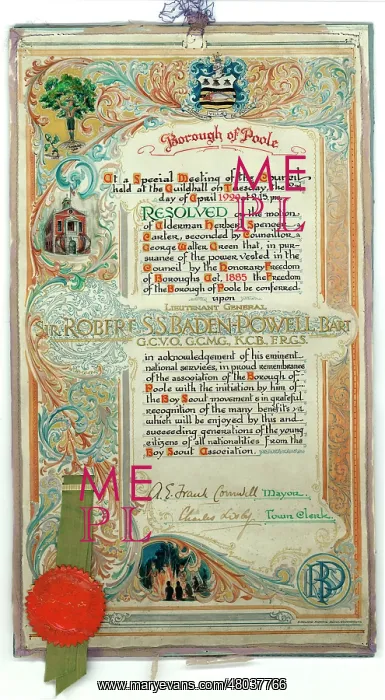 Borough of Poole
At a Special Meeting of the Council
held at the Guildhall on Tuesday, the 2nd
day of April 1929 at 2.15 p.m.
RESOLVED on the motion
of Alderman Herbert Spencer
Carter, seconded by Councillor
George Walter Green that, in pur-
suance of the power vested in the
Council by the Honorary Freedom
of Boroughs Act, 1885 the Freedom
of the Borough of Poole be conferred
upon
LIEUTENANT GENERAL
SIR ROBERT S.S. BADEN-POWELL, BART
G.C.V.O., G.C.M.G., K.C.B., F.R.G.S.
in acknowledgement of his eminent
national services, in proud remembrance
of the association of the Borough of
Poole with the initiation by him of
the Boy Scout movement & in grateful
recognition of the many benefits
which will be enjoyed by this and
succeeding generations of the young
citizens of all nationalities from the
Boy Scout Association.
Mayor.
Charles Town Clerk.
BP
ME
PL
ME
PL
www.maryevans.com/48037766